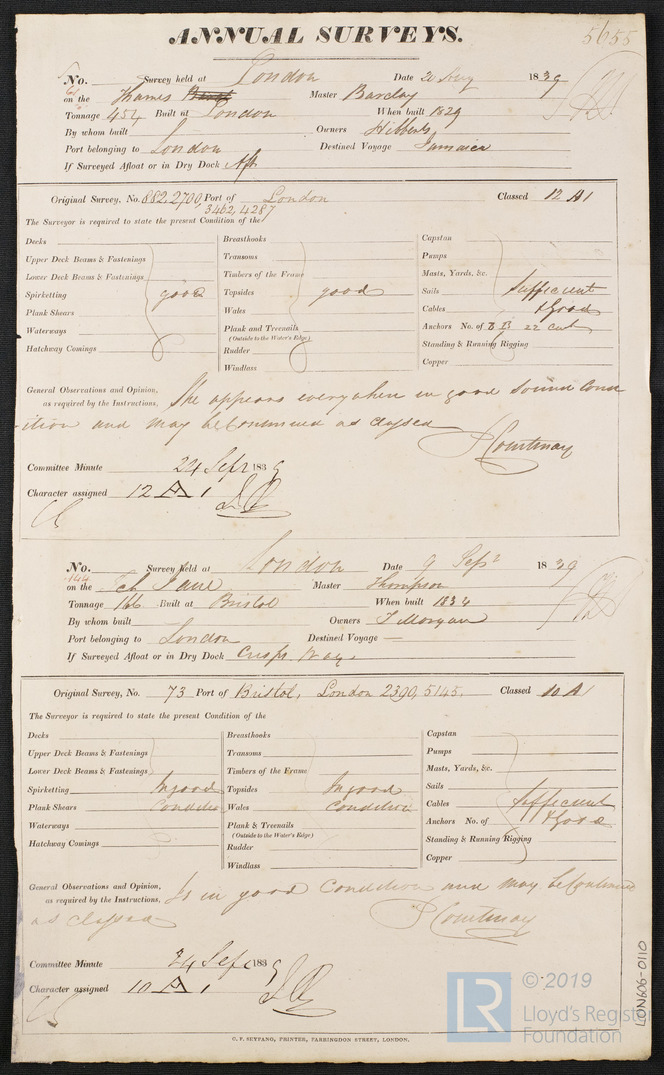 ANNUAL SURVEYS.
5655
No. Survey held at London Date 20 Aug 1839
on the Thames Master Barclay
Tonnage 454 Built at London When built 1829
By whom built Owners Hibberts
Port belonging to London Destined Voyage Jamaica
If Surveyed Afloat or in Dry Dock Aflt
Original Survey, No. 882, 2700, Port of London Classed 12 A1
3462, 4287
The Surveyor is required to state the present Condition of the
Decks Breasthooks Capstan
Upper Deck Beams & Fastenings Transoms Pumps
Lower Deck Beams & Fastenings Timbers of the Frame Masts, Yards, &c.
Spirketting good Topsides good Sails Sufficient
Plank Shears Wales Cables & Good
Waterways Plank and Treenails Anchors No. of 8 B 22 cwt
(Outside to the Water's Edge)
Hatchway Comings Rudder Standing & Running Rigging
Windlass Copper
General Observations and Opinion, She appears everywhere in good sound Cond
as required by the Instructions,
ition and may be Continued as classed
Courtnay
Committee Minute 24 Sept 1839
Character assigned 12 A 1
No. Survey held at London Date 9 Sepr 1839
144
on the Sch Jane Master Thompson
Tonnage 166 Built at Bristol When built 1834
By whom built Owners J Morgan
Port belonging to London Destined Voyage —
If Surveyed Afloat or in Dry Dock Crisps Way
Original Survey, No. 73 Port of Bristol, London 2390, 5145. Classed 10 A1
The Surveyor is required to state the present Condition of the
Decks Breasthooks Capstan
Upper Deck Beams & Fastenings Transoms Pumps
Lower Deck Beams & Fastenings Timbers of the Frame Masts, Yards, &c.
Spirketting In good Topsides In good Sails
Plank Shears Condition Wales Condition Cables Sufficient
Waterways Plank & Treenails Anchors No. of & Good
(Outside to the Water's Edge)
Hatchway Comings Rudder Standing & Running Rigging
Windlass Copper
General Observations and Opinion, Is in good Condition and may be Continued
as required by the Instructions,
as classed
Courtnay
Committee Minute 24 Sept 1839
Character assigned 10 A 1
LON606-0110
LR © 2019
Lloyd's Register
Foundation
C. F. SEYFANG, PRINTER, FARRINGDON STREET, LONDON.